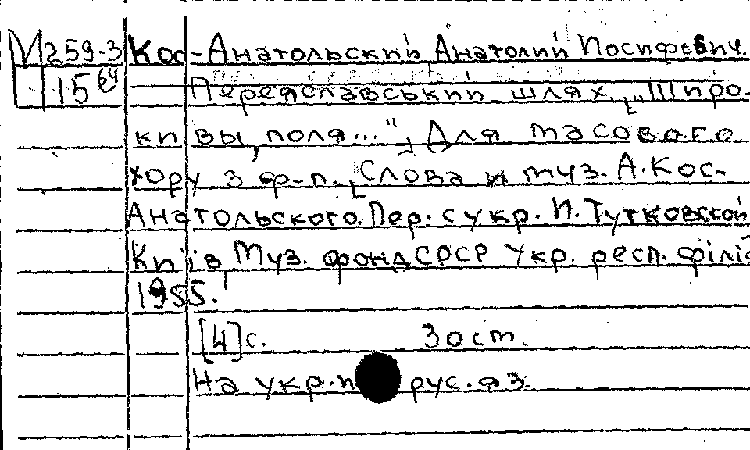 М259-3 Кос-Анатольский, Анатолий Иосифович.
15 64 Переяславський шлях. [„Широ-
ки вы, поля..."] Для масового
хору з ф-п. [Слова и муз. А. Кос-
Анатольского. Пер. с укр. И. Тутковской
Київ, Муз. фонд СРСР Укр. респ. філія
1955.
[4] с. Зост.
На укр. рус. яз.